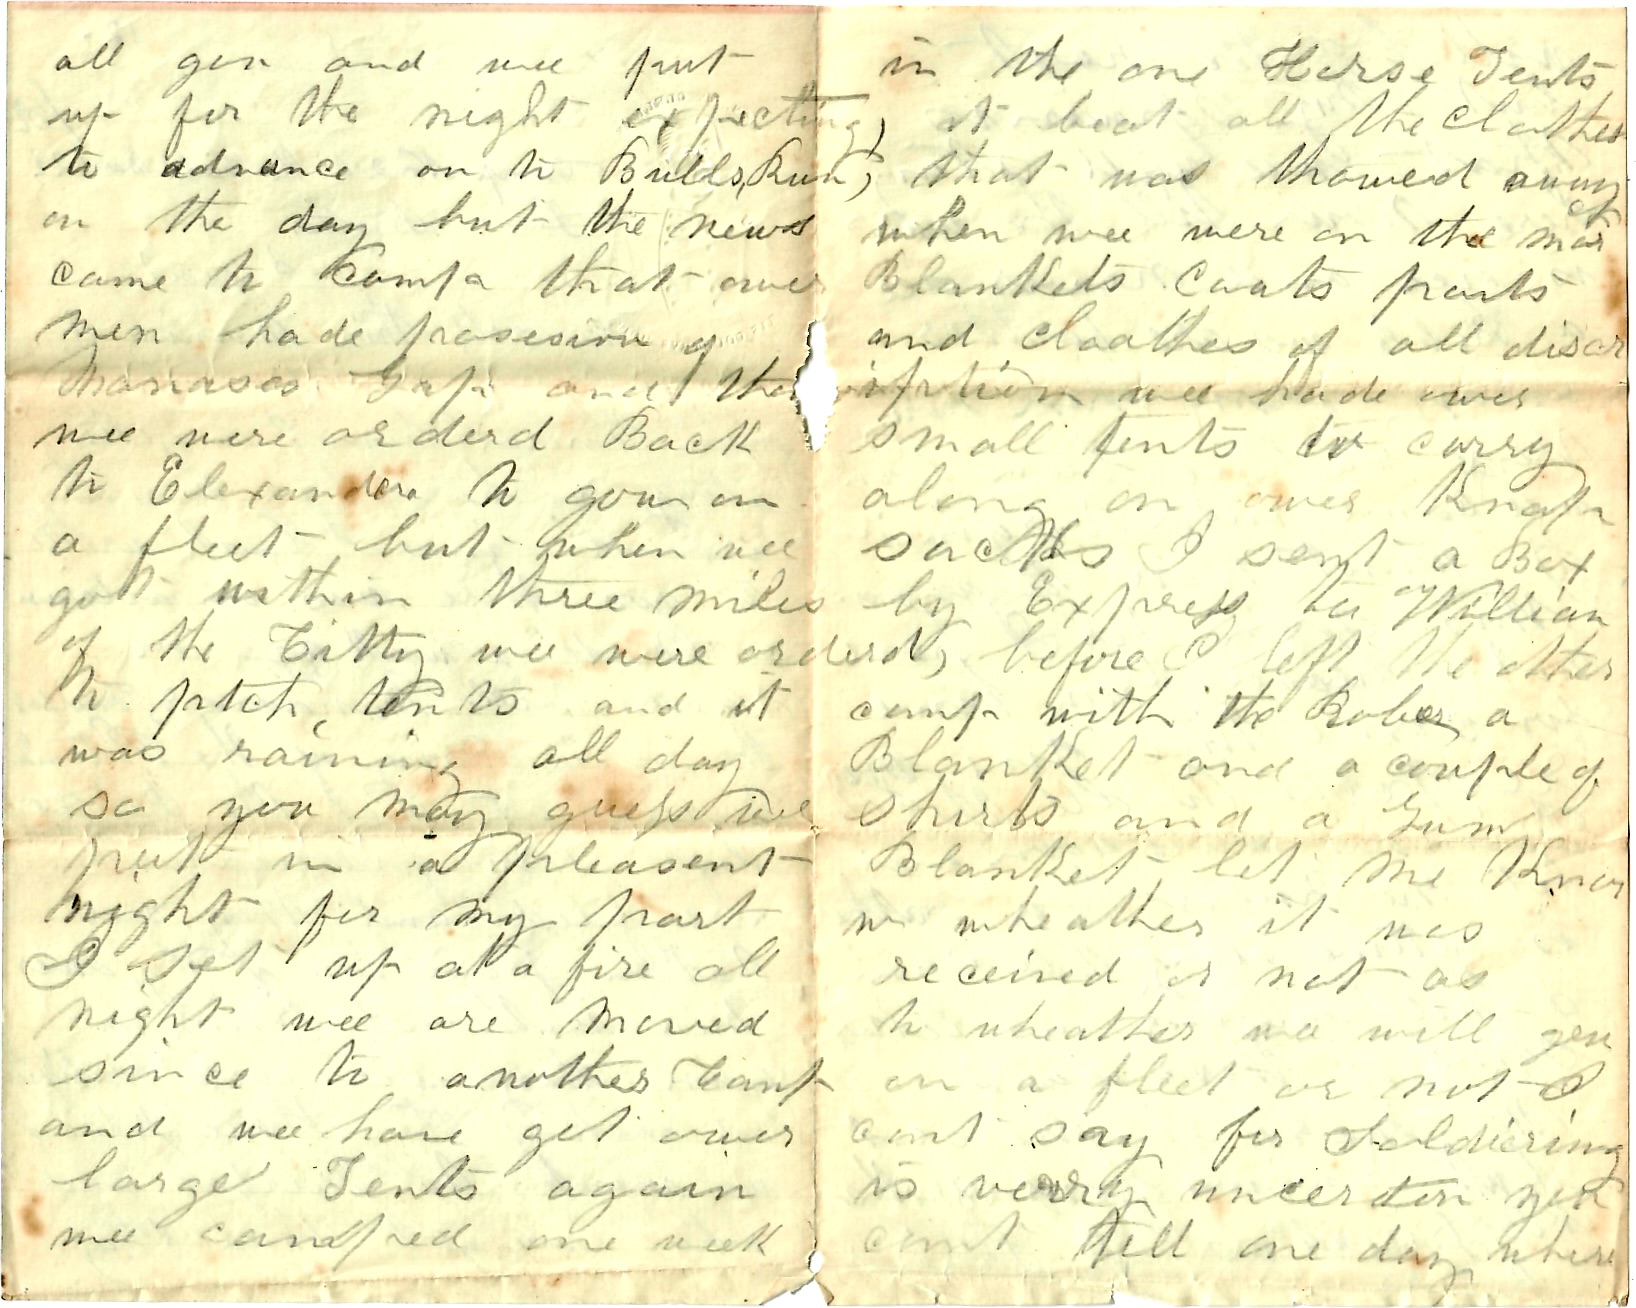 all gon and wee put
up for the night expecting,
to advance on to Bulls, Run,
on the day but the news
came to Camp that ower
men hade prosesion of
Manasas Gap and then
wee were orderd Back
to Elexandra to gow on
a fleet but when wee
got within three miles
of the Citty wee were orderd,
to ptch, tents and it
was raining all day
so you may guess wee
put in a pleasent
night for my part
I set up at a fire all
night wee are moved
since to another Camp
and wee have get ower
large Tents again
wee campred one week
in the one Horse Tents
it beat all the Clothes
that was thowed away
when wee were on the mar
ch
Blankets Coats pants
and cloathes of all discr
iption wee hade ower
small tents to carry
along on ower Knap
sacks I sent a Box
by Express to William
before I left the other
camp with the Robes, a
Blanket and a couple of
shirts and a Gum
Blanket let me Know
w wheather it was
received or not as
to wheather wee will gou
on a fleet or not I
cant say for Soldiering
is verry uncerten you
cant tell one day where